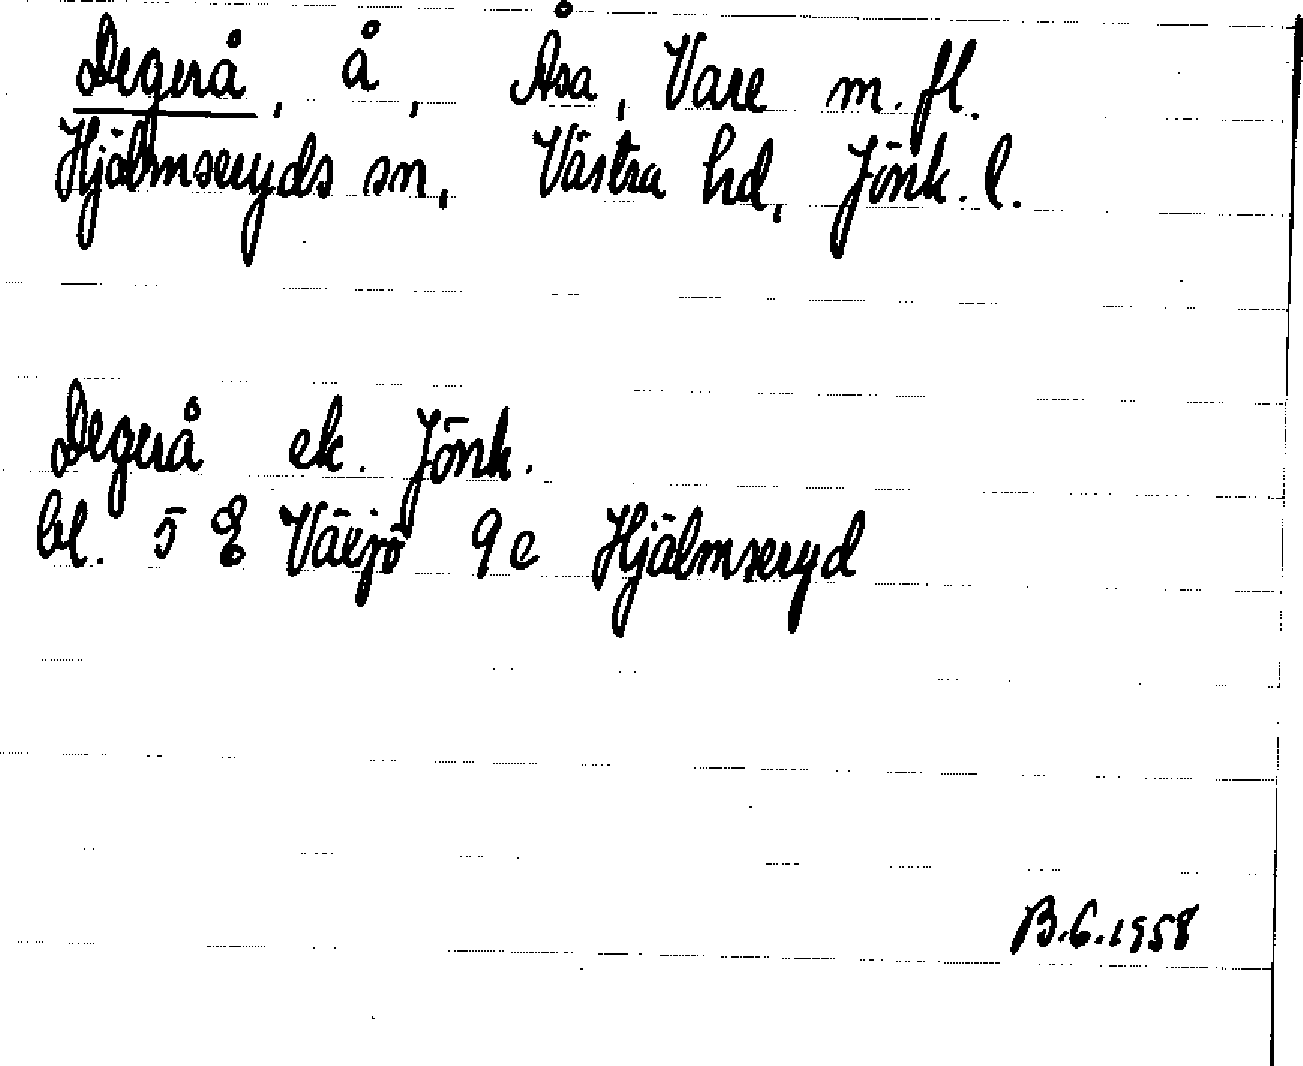 Degerå, å, Åsa, Vare m.fl.
Hjälmseryds sn, Västra hd, Jönk. l.
Degerå ek. Jönk.
bl. 5 E Växjö 9 c Hjälmseryd
B.G.1958